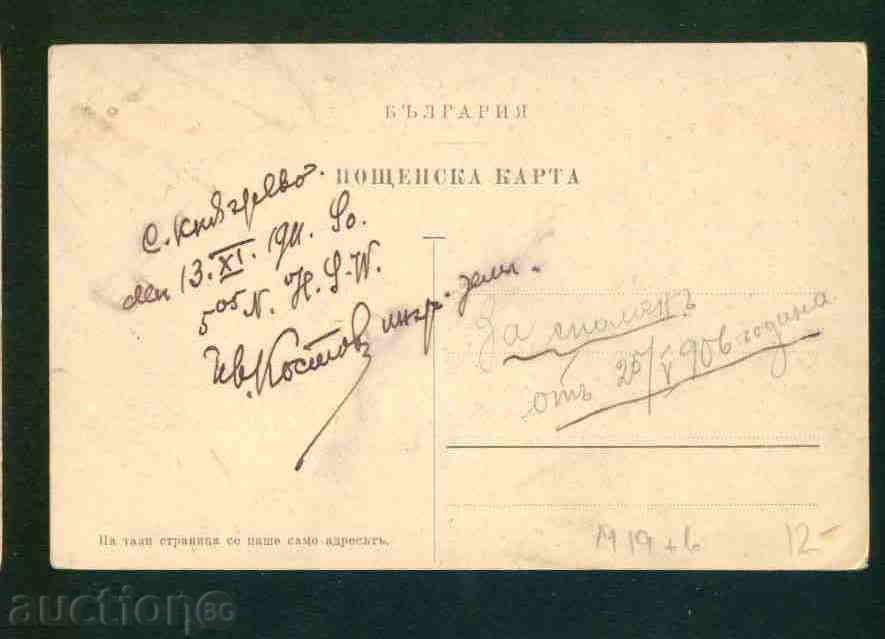 БЪЛГАРИЯ
ПОЩЕНСКА КАРТА
с. Княжево.
ден 13. XI. 1911. So.
5 05 N. H. S-W.
Ив. Костов
За споменъ
отъ 25/V 906 година
На тази страница се пише само адресътъ.
12-
auction BG